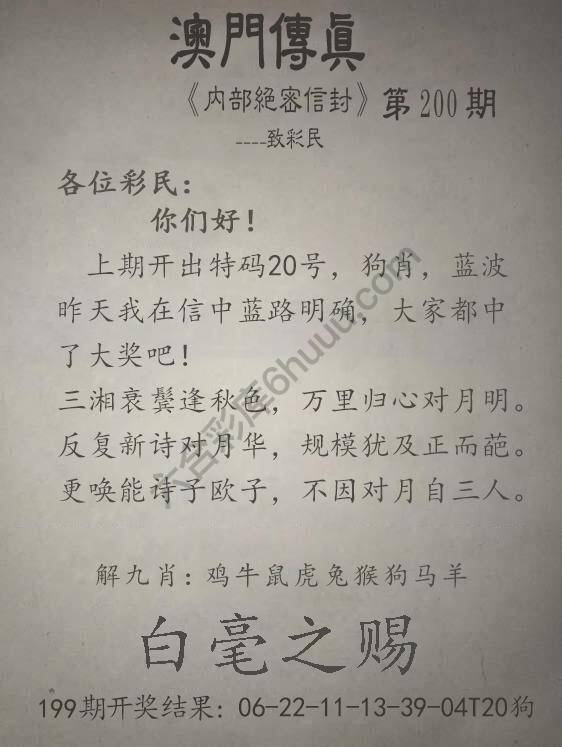 澳門傳眞
《内部絕密信封》第200期
----致彩民
各位彩民：
你们好！
上期开出特码20号，狗肖，蓝波
昨天我在信中蓝路明确，大家都中
了大奖吧！
三湘衰鬓逢秋色，万里归心对月明。
反复新诗对月华，规模犹及正而葩。
更唤能诗子欧子，不因对月自三人。
解九肖：鸡牛鼠虎兔猴狗马羊
白毫之赐
199期开奖结果：06-22-11-13-39-04T20狗
六合彩库6huuu.com